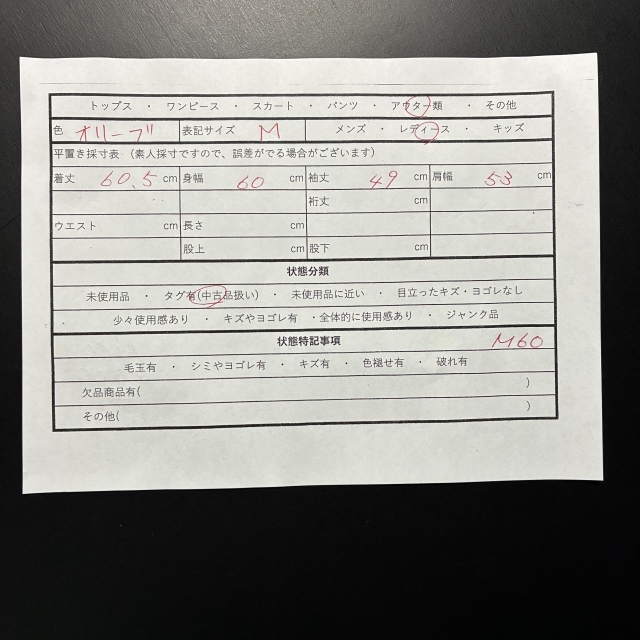 トップス ・ ワンピース ・ スカート ・ パンツ ・ アウター類 ・ その他
色 オリーブ 表記サイズ M メンズ ・ レディース ・ キッズ
平置き採寸表 (素人採寸ですので、誤差がでる場合がございます)
着丈 60.5 cm 身幅 60 cm 袖丈 49 cm 肩幅 53 cm
裄丈 cm
ウエスト cm 長さ cm
股上 cm 股下 cm
状態分類
未使用品 ・ タグ有(中古品扱い) ・ 未使用品に近い ・ 目立ったキズ・ヨゴレなし
少々使用感あり ・ キズやヨゴレ有 ・全体的に使用感あり ・ ジャンク品
状態特記事項 M60
毛玉有 ・ シミやヨゴレ有 ・ キズ有 ・ 色褪せ有 ・ 破れ有
欠品商品有( )
その他( )